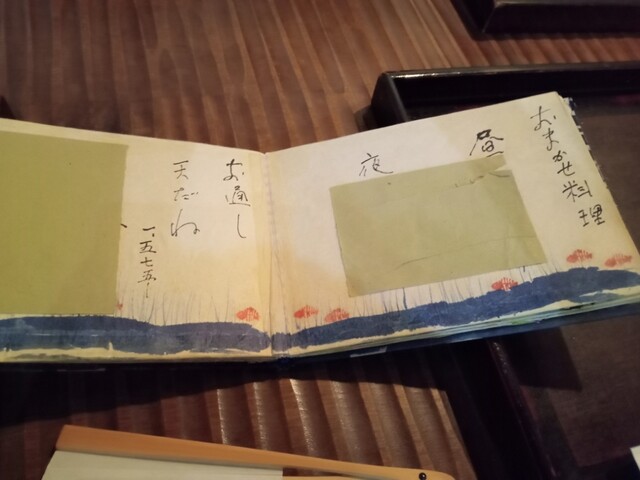 おまかせ料理
昼
夜
お通し
天だね
一、五七五〜